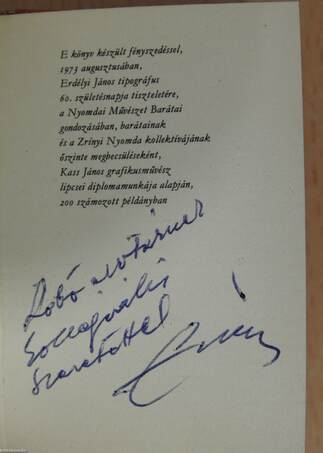 E könyv készült fényszedéssel,
1973 augusztusában,
Erdélyi János tipográfus
60. születésnapja tiszteletére,
a Nyomdai Művészet Barátai
gondozásában, barátainak
és a Zrínyi Nyomda kollektívájának
őszinte megbecsüléseként,
Kass János grafikusművész
lipcsei diplomamunkája alapján,
200 számozott példányban
Szabó
szeretettel